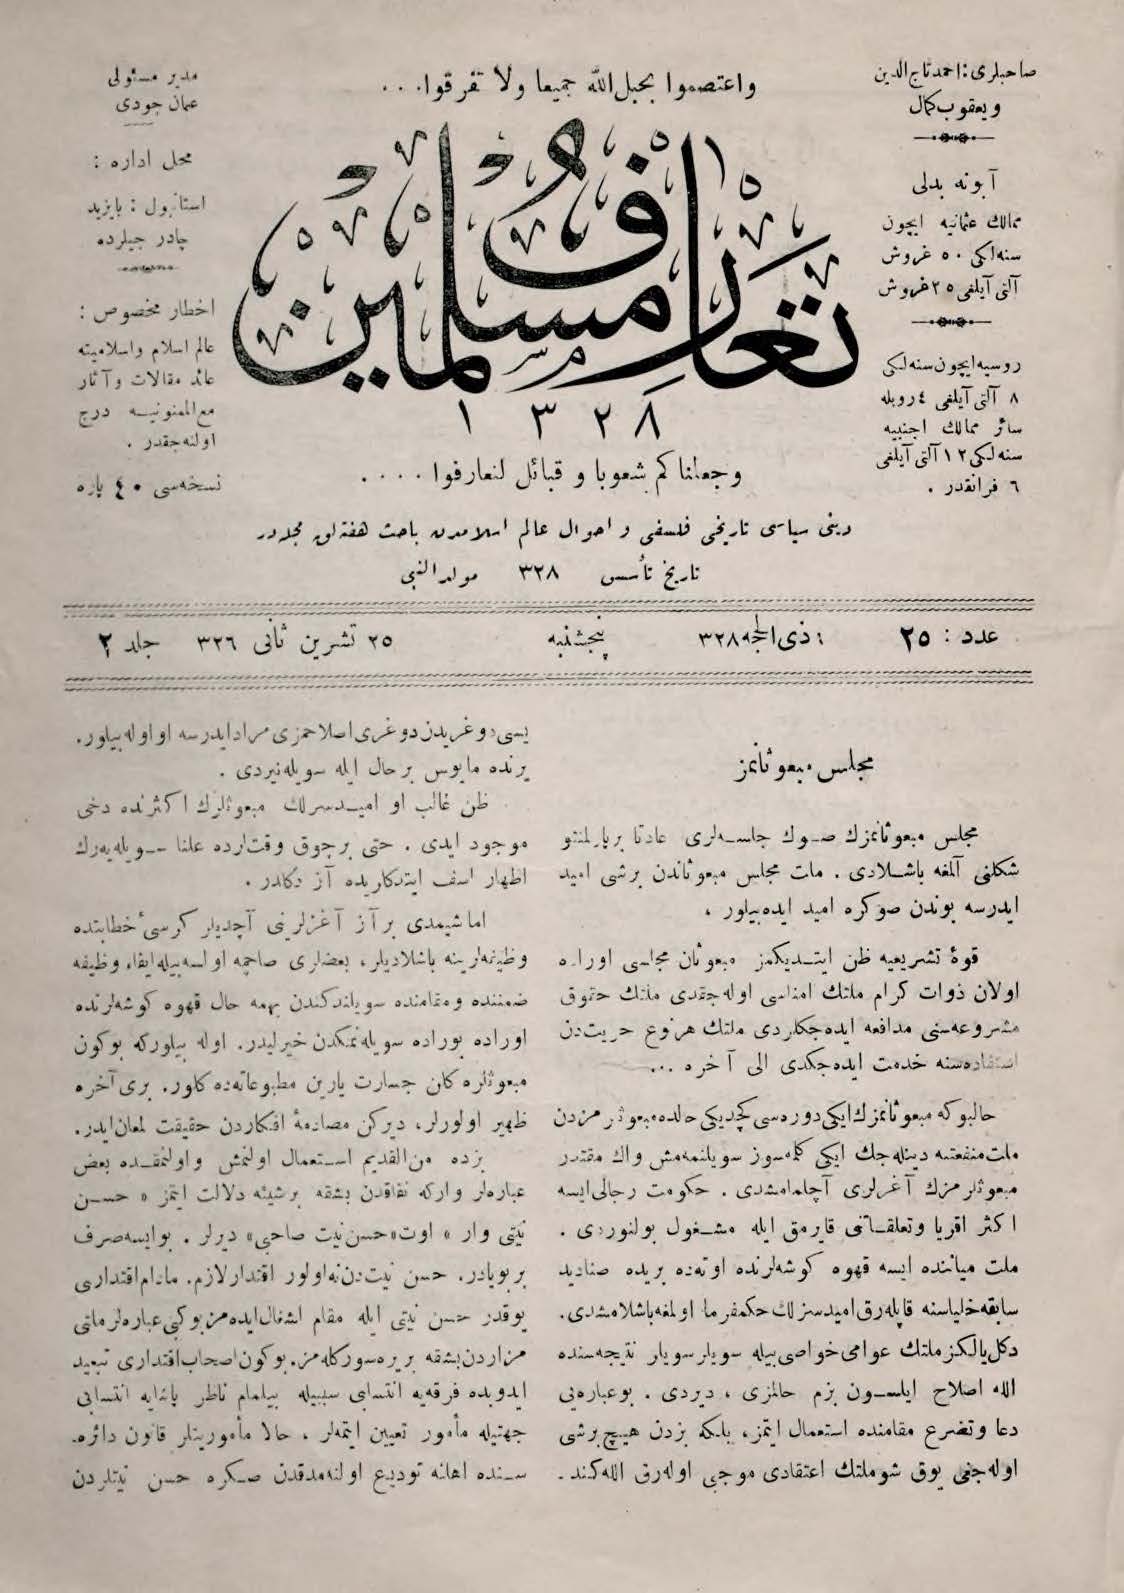 واعتصموا بحبل الله جميعا ولا تفرقوا...
صاحبلری : احمد تاج الدین
و یعقوب کمال
آبونه بدلی
ممالك عثمانیه ایچون
سنه لکی ٥٠ غروش
آلتی آیلغی ٢٥ غروش
روسیه ایچون سنه لکی
٨ آلتی آیلغی ٤ روبله
سائر ممالك اجنبیه
سنه لکی ١٢ آلتی آیلغی
٦ فرانقدر .
مدیر مسئولی
عثمان جودی
محل اداره :
استانبول : بایزید
چادر جیلرده
اخطار مخصوص :
عالم اسلام و اسلامیته
عائد مقالات و آثار
مع الممنونیه درج
اولنه جقدر .
نسخه سی ٤٠ پاره
تعارف مسلمین
١٣٢٨
وجعلناکم شعوبا و قبائل لتعارفوا ....
دینی سیاسی تاریخی فلسفی و احوال عالم اسلامدن باحث هفته لق مجله در
تاریخ تأسس ٣٢٨ مولد النبی
عدد : ٢٥ ذی الحجه ٣٢٨ پنجشنبه ٢٥ تشرین ثانی ٣٢٦ جلد ٢
مجلس مبعوثانمز
مجلس مبعوثانمزك صوك جلسه لری عادتا بر پارلمنتو
شکلنی آلمغه باشلادی . ملت مجلس مبعوثاندن برشی امید
ایدرسه بوندن صوکره امید ایده بیلور ،
قوۀ تشریعیه ظن ایتدیکمز مبعوثان مجلسی اوراده
اولان ذوات کرام ملتك امناسی اوله جقدی ملتك حقوق
مشروعه سنی مدافعه ایده جکلردی ملتك هر نوع حریتدن
استفاده سنه خدمت ایده جکدی الی آخره ...
حالبوکه مبعوثانمزك ایکی دوره سی کچدیکی حالده مبعوثلرمزدن
ملت منفعتنه دینله جك ایکی کلمه سوز سویلنمه مش و اك مقتدر
مبعوثلرمزك آغزلری آچلمامشدی . حکومت رجالی ایسه
اکثر اقربا و تعلقاتنی قایرمق ایله مشغول بولنوردی .
ملت میاننده ایسه قهوه کوشه لرنده اوته ده بریده صنادید
سابقه خلیاسنه قاپیله رق امیدسزلك حکمفرما اولمغه باشلامشدی.
دکل یالکز ملتك عوامی خواصی بیله سویلر سویلر نتیجه سنده
الله اصلاح ایلسون بزم حالمزی ، دیردی . بو عباره یی
دعا و تضرع مقامنده استعمال ایتمز، بلکه بزدن هیچ برشی
اوله جغی یوق شو ملتك اعتقادی موجبی اوله رق الله کند ـ
یسی دوغریدن دوغری اصلاحمزی مراد ایدرسه او اوله بیلور.
یرنده مایوس بر حال ایله سویله نیردی .
ظن غالب او امیدسزلك مبعوثلرك اکثرنده دخی
موجود ایدی . حتی برچوق وقتلرده علنا سویله یه رك
اظهار اسف ایتدکلریده آز دکلدر .
اما شیمدی بر آز آغزلرینی آچدیلر کرسئ خطابتده
وظیفه لرینه باشلادیلر ، بعضلری صاچمه اولسه بیله ایفاء وظیفه
ضمننده و مقامنده سویلندکندن بهمه حال قهوه کوشه لرنده
اوراده بوراده سویله نمکدن خیرلیدر. اوله بیلورکه بوکون
مبعوثلره کلن جسارت یارین مطبوعاته ده کلور. بری آخره
ظهیر اولورلر، دیرکن مصادمۀ افکاردن حقیقت لمعان ایدر.
بزده من القدیم استعمال اولنمش و اولنمقده بعض
عباره لر وارکه نفاقدن بشقه برشیئه دلالت ایتمز « حسن
نیتی وار » اوت «حسن نیت صاحبی» دیرلر . بو ایسه صرف
بر بویادر. حسن نیتدن نه اولور اقتدار لازم. مادام اقتداری
یوقدر حسن نیتی ایله مقام اشغال ایده مز بو کبی عباره لر ملتی
مزاردن بشقه بریره سورکله مز. بوکون اصحاب اقتداری تبعید
ایدوبده فرقه یه انتسابی سببیله بیلمام ناظر پاشایه انتسابی
جهتیله مأمور تعیین ایتمه لر ، حالا مأمورینلر قانون دائره ـ
سنده اهلنه تودیع اولنه مدقدن صکره حسن نیتلردن